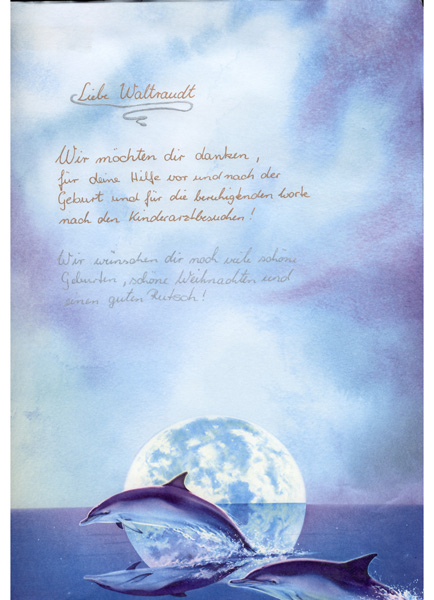 Liebe Waltraudt
Wir möchten dir danken,
für deine Hilfe vor und nach der
Geburt und für die beruhigenden Worte
nach den Kinderarztbesuchen!
Wir wünschen dir noch viele schöne
Geburten, schöne Weihnachten und
einen guten Rutsch!